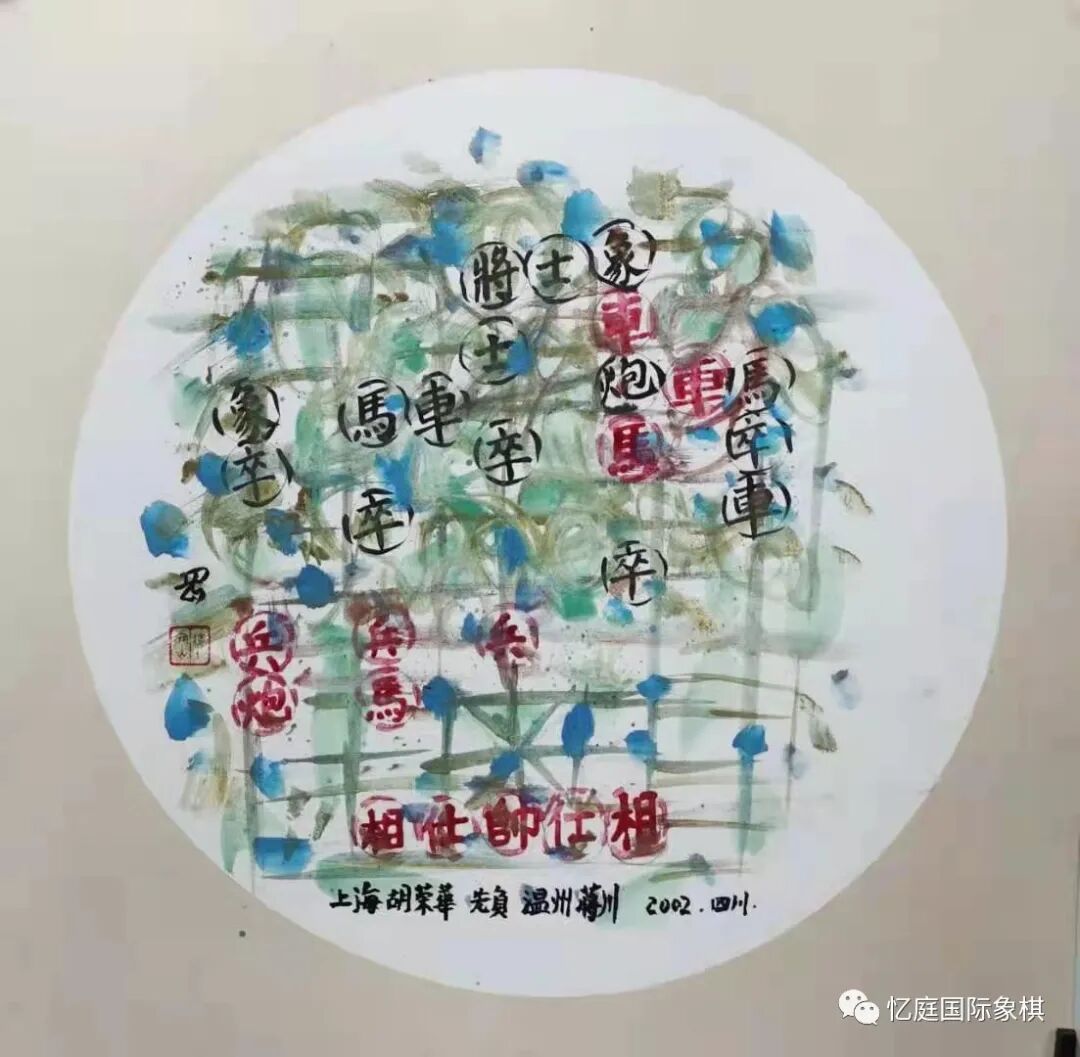 將士象
士車
象馬車炮車馬
卒卒馬卒
卒車
卒
兵兵兵
炮馬
相仕帥仕相
上海胡荣華 先負 温州蒋川 2002.四川.
忆庭国际象棋